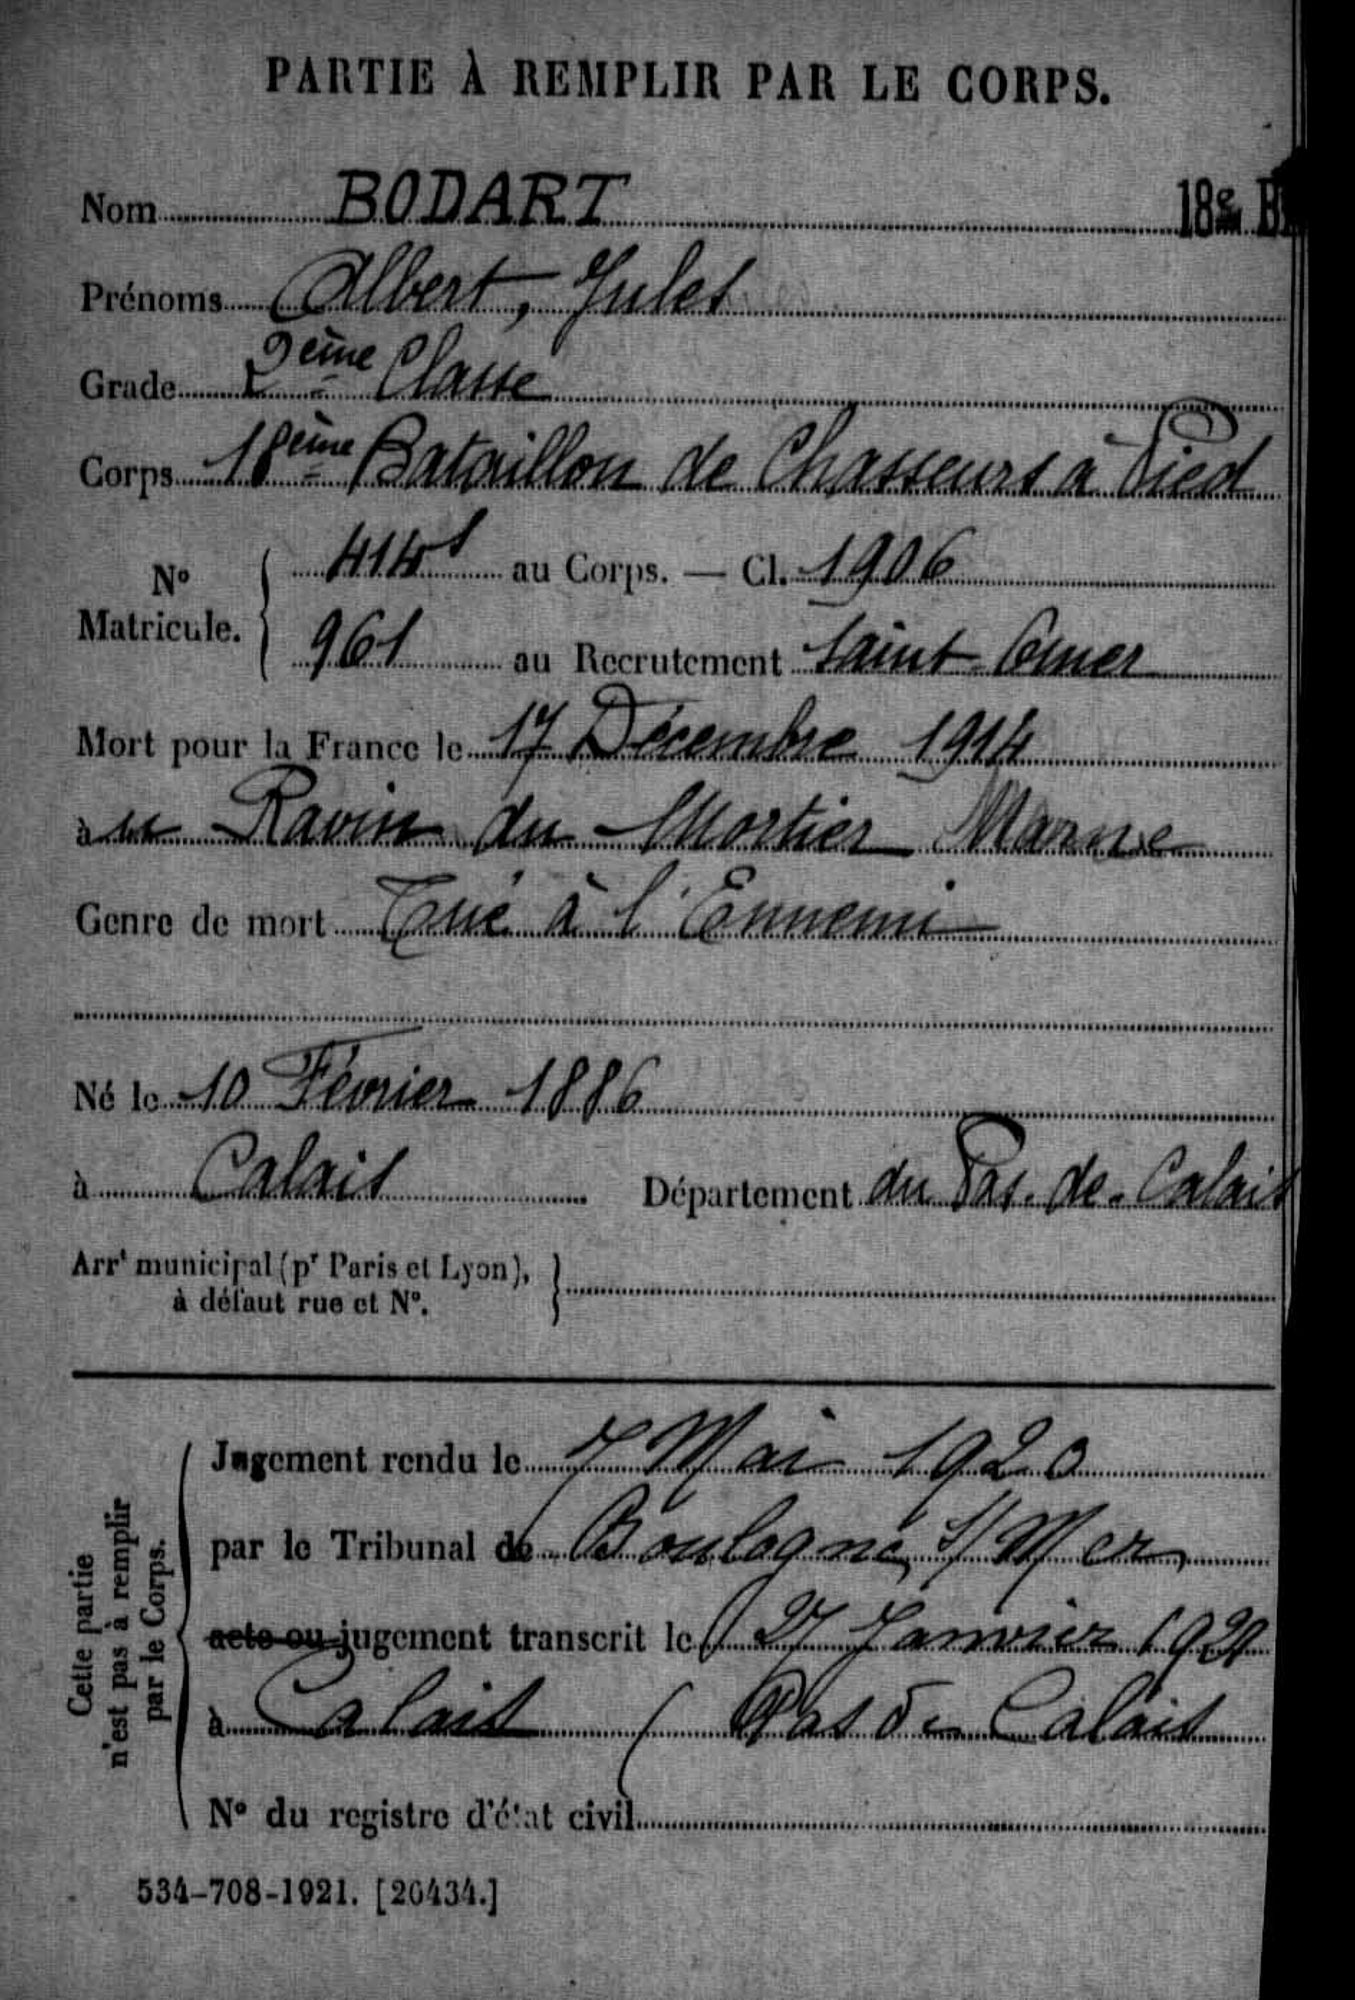 PARTIE À REMPLIR PAR LE CORPS.
Nom BODART
18e B
Prénoms Albert, Jules
Grade 2ème Classe
Corps 18ème Bataillon de Chasseurs à Pied
N° Matricule. au Corps. — Cl. 1906
961 au Recrutement Saint Omer
Mort pour la France le 17 Décembre 1914
à Ravin du Mortier Marne
Genre de mort Tué à l'Ennemi
Né le 10 Février 1886
à Calais Département du Pas-de-Calais
Arrt municipal (pr Paris et Lyon),
à défaut rue et N°.
Cette partie
n'est pas à remplir
par le Corps.
Jugement rendu le 7 Mai 1920
par le Tribunal de Boulogne s/Mer
acte ou jugement transcrit le 27 Janvier
à Calais (Pas de Calais
N° du registre d'état civil
534-708-1921. [26434.]